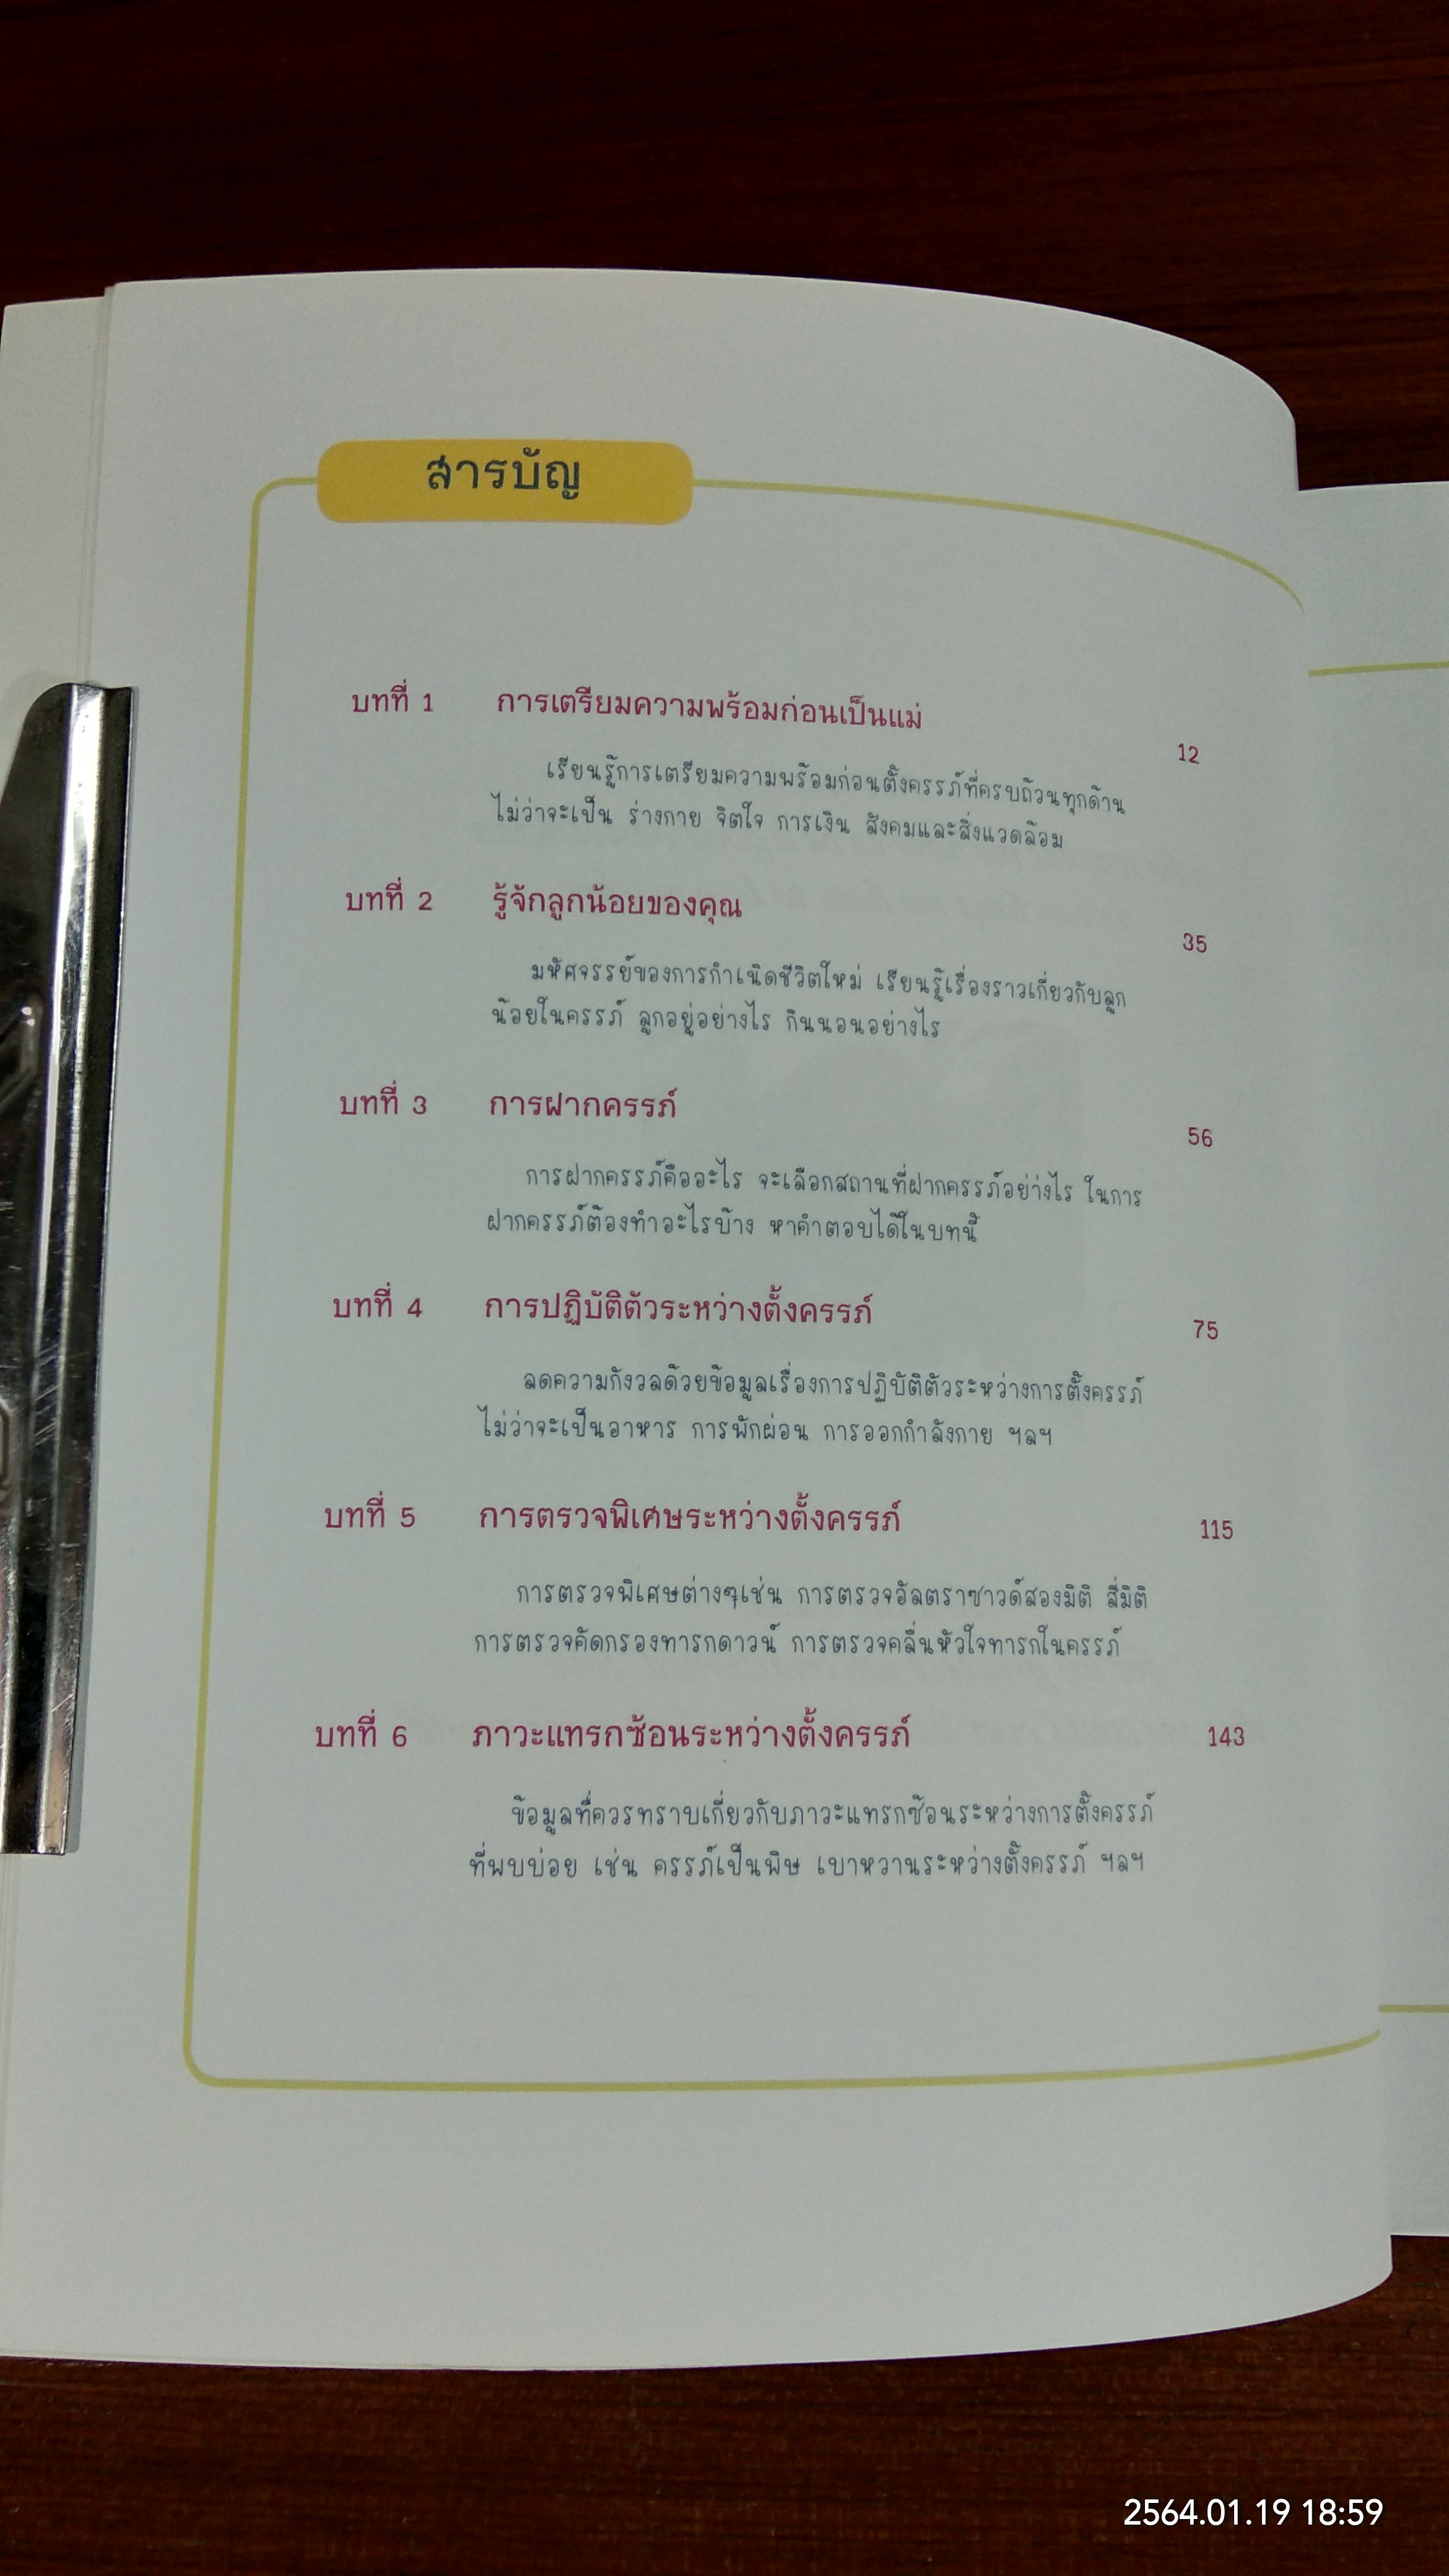 สารบัญ
บทที่ 1 การเตรียมความพร้อมก่อนเป็นแม่ 12
เรียนรู้การเตรียมความพร้อมก่อนตั้งครรภ์ที่ครบถ้วนทุกด้าน
ไม่ว่าจะเป็น ร่างกาย จิตใจ การเงิน สังคมและสิ่งแวดล้อม
บทที่ 2 รู้จักลูกน้อยของคุณ 35
มหัศจรรย์ของการกำเนิดชีวิตใหม่ เรียนรู้เรื่องราวเกี่ยวกับลูก
น้อยในครรภ์ ลูกอยู่อย่างไร กินนอนอย่างไร
บทที่ 3 การฝากครรภ์ 56
การฝากครรภ์คืออะไร จะเลือกสถานที่ฝากครรภ์อย่างไร ในการ
ฝากครรภ์ต้องทำอะไรบ้าง หาคำตอบได้ในบทนี้
บทที่ 4 การปฏิบัติตัวระหว่างตั้งครรภ์ 75
ลดความกังวลด้วยข้อมูลเรื่องการปฏิบัติตัวระหว่างการตั้งครรภ์
ไม่ว่าจะเป็นอาหาร การพักผ่อน การออกกำลังกาย ฯลฯ
บทที่ 5 การตรวจพิเศษระหว่างตั้งครรภ์ 115
การตรวจพิเศษต่างๆเช่น การตรวจอัลตราซาวด์สองมิติ สี่มิติ
การตรวจคัดกรองทารกดาวน์ การตรวจคลื่นหัวใจทารกในครรภ์
บทที่ 6 ภาวะแทรกซ้อนระหว่างตั้งครรภ์ 143
ข้อมูลที่ควรทราบเกี่ยวกับภาวะแทรกซ้อนระหว่างการตั้งครรภ์
ที่พบบ่อย เช่น ครรภ์เป็นพิษ เบาหวานระหว่างตั้งครรภ์ ฯลฯ
2564.01.19 18:59